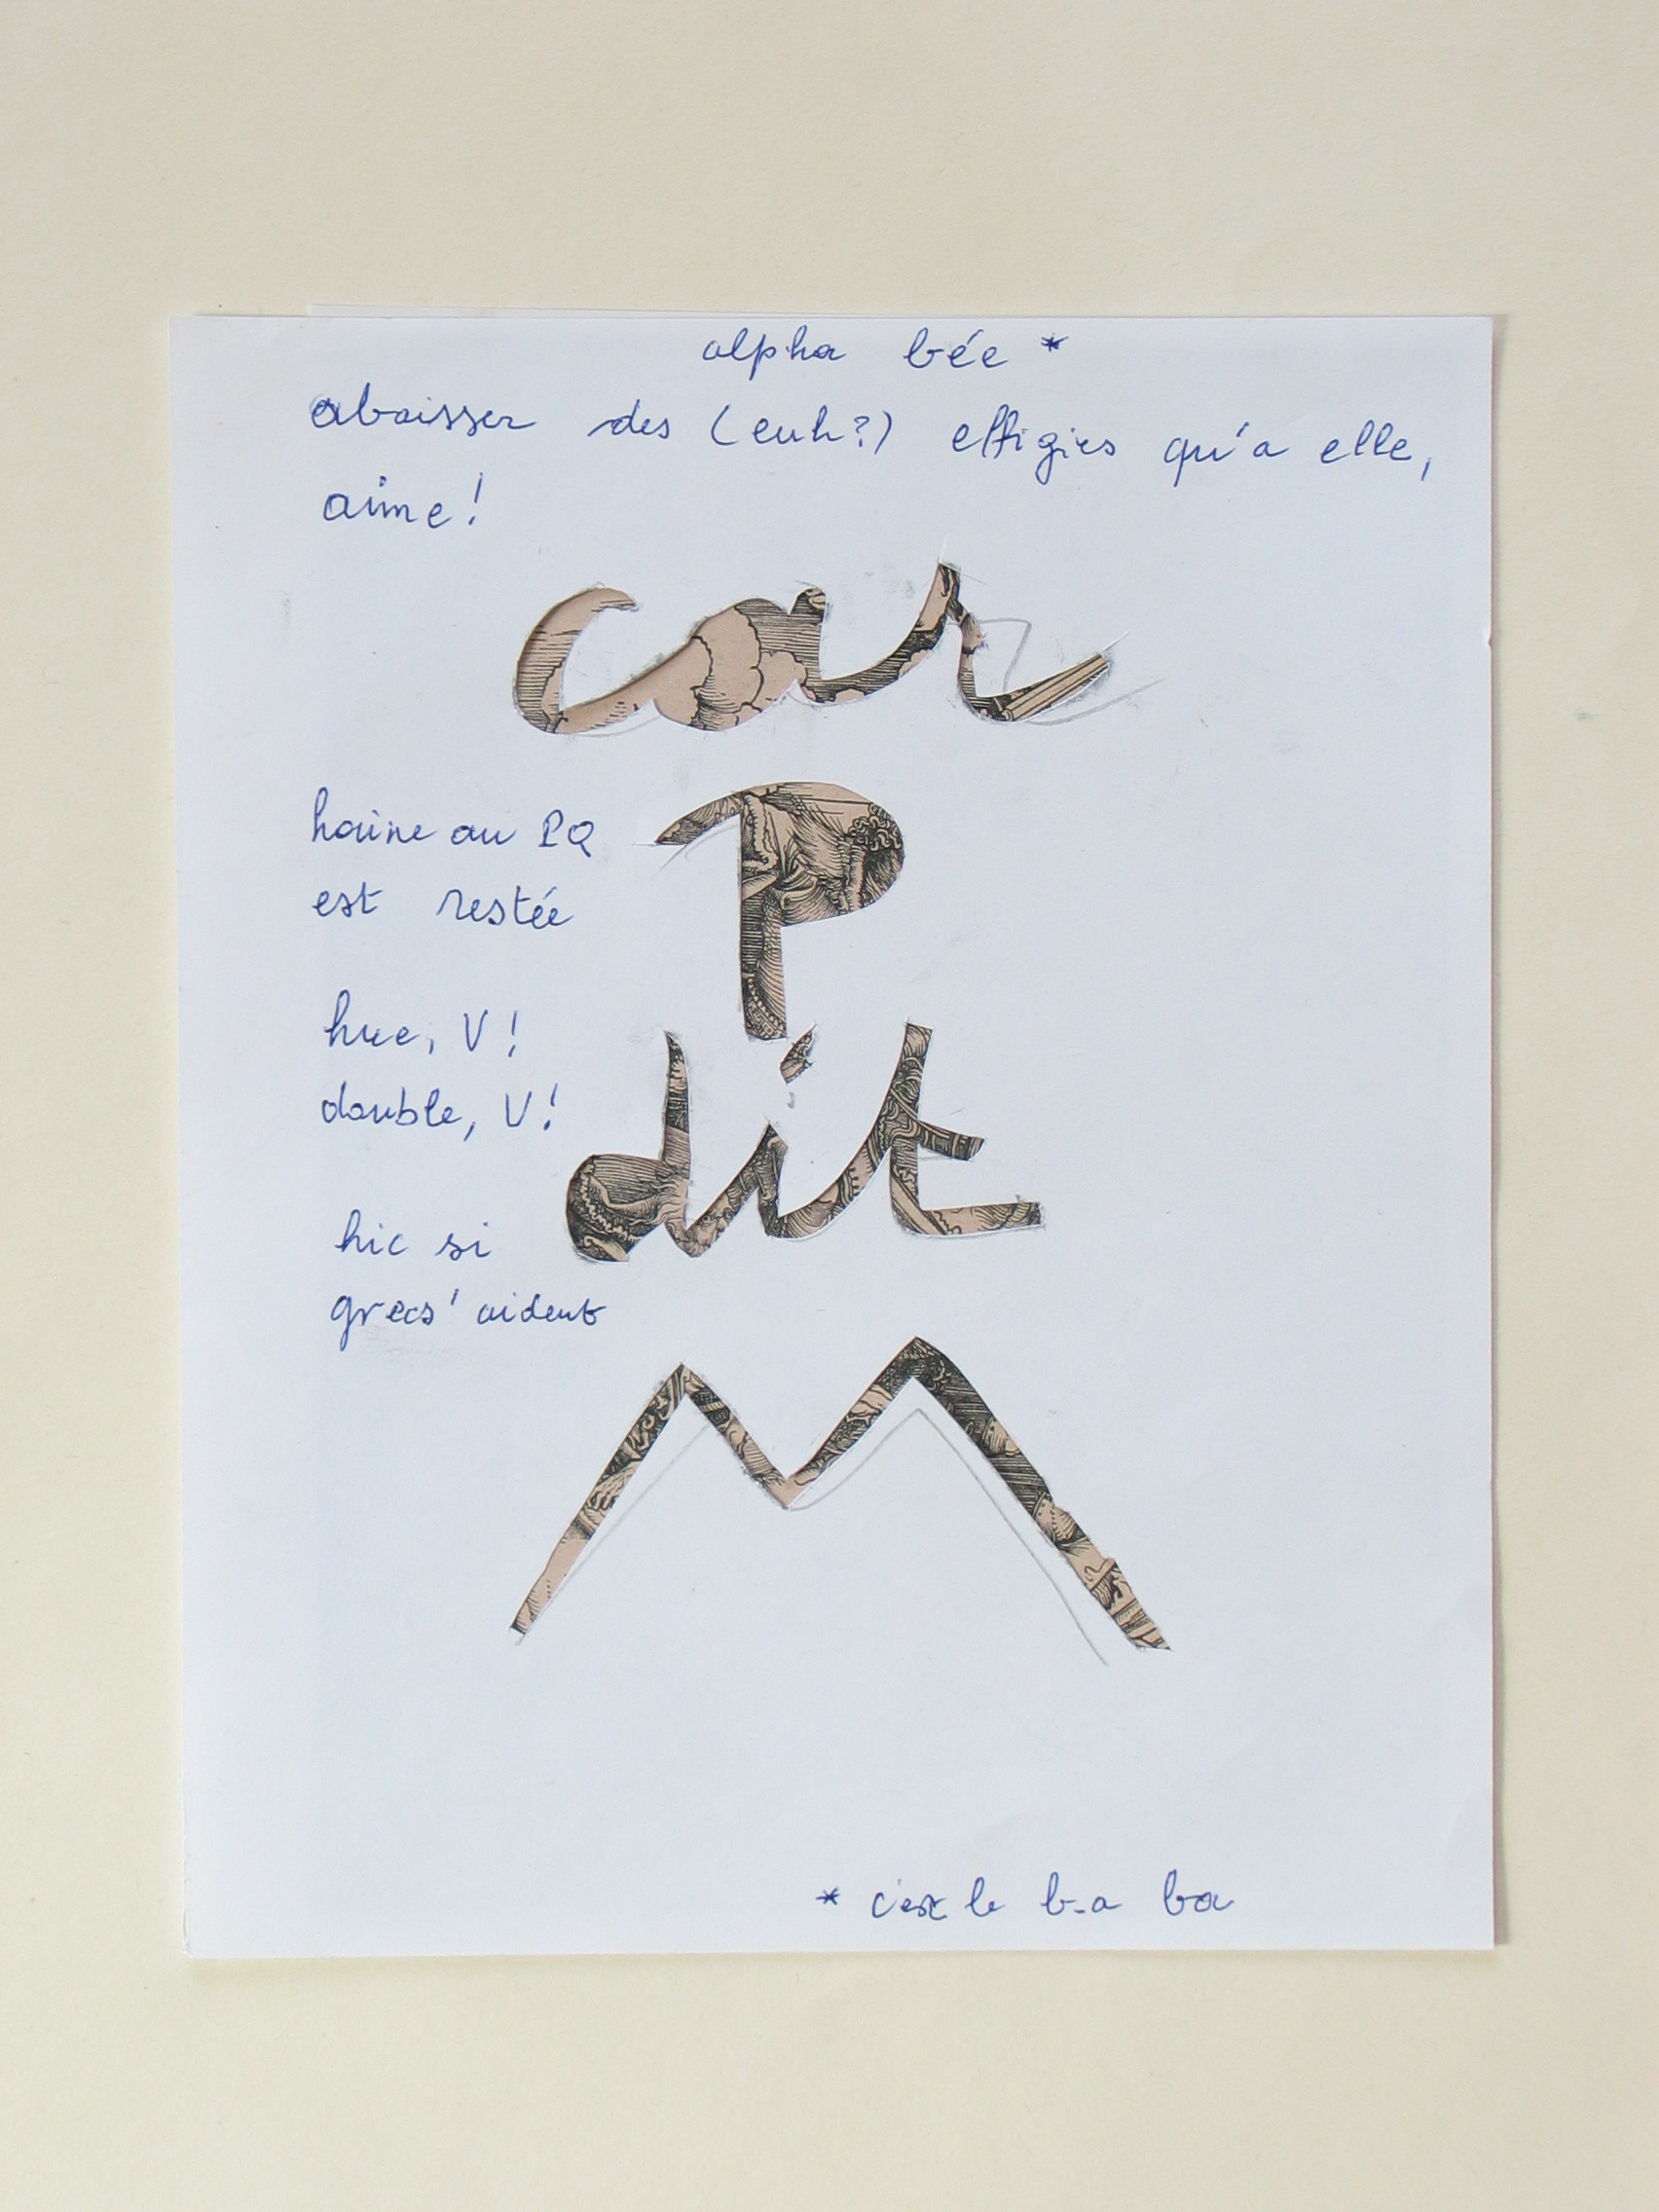 alpha bée *
abaisser des (euh?) effigies qu'a elle,
aime!
car
P
dit
M
haine au PQ
est restée
hue, V!
double, V!
hic si
grecs' aident
* c'est le b-a ba